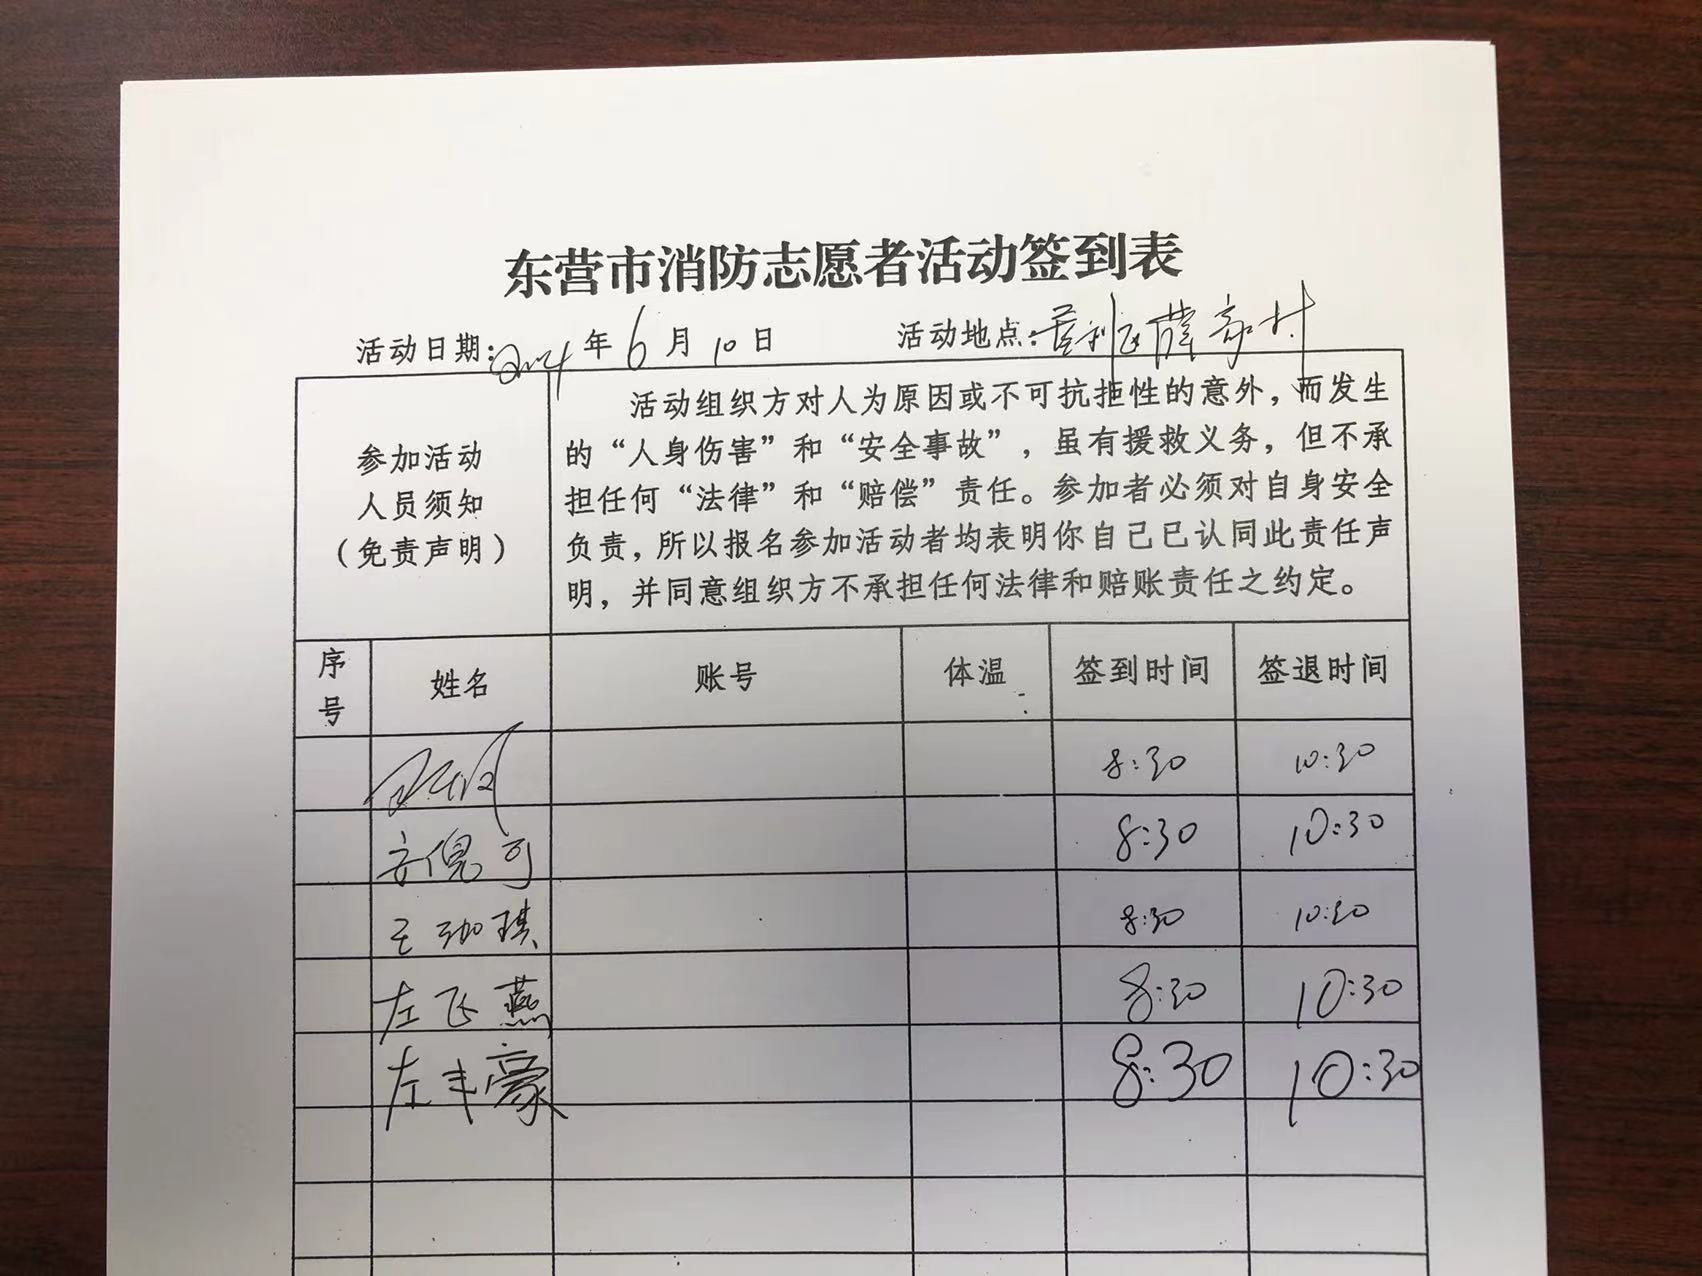 东营市消防志愿者活动签到表
活动日期:2024年6月10日 活动地点:垦利区薛家村
参加活动
人员须知
(免责声明)
活动组织方对人为原因或不可抗拒性的意外，而发生
的“人身伤害”和“安全事故”，虽有援救义务，但不承
担任何“法律”和“赔偿”责任。参加者必须对自身安全
负责，所以报名参加活动者均表明你自己已认同此责任声
明，并同意组织方不承担任何法律和赔账责任之约定。
序号 姓名 账号 体温 签到时间 签退时间
8:30 10:30
安倪可 8:30 10:30
王珈琪 8:30 10:30
左飞燕 8:30 10:30
左丰豪 8:30 10:30